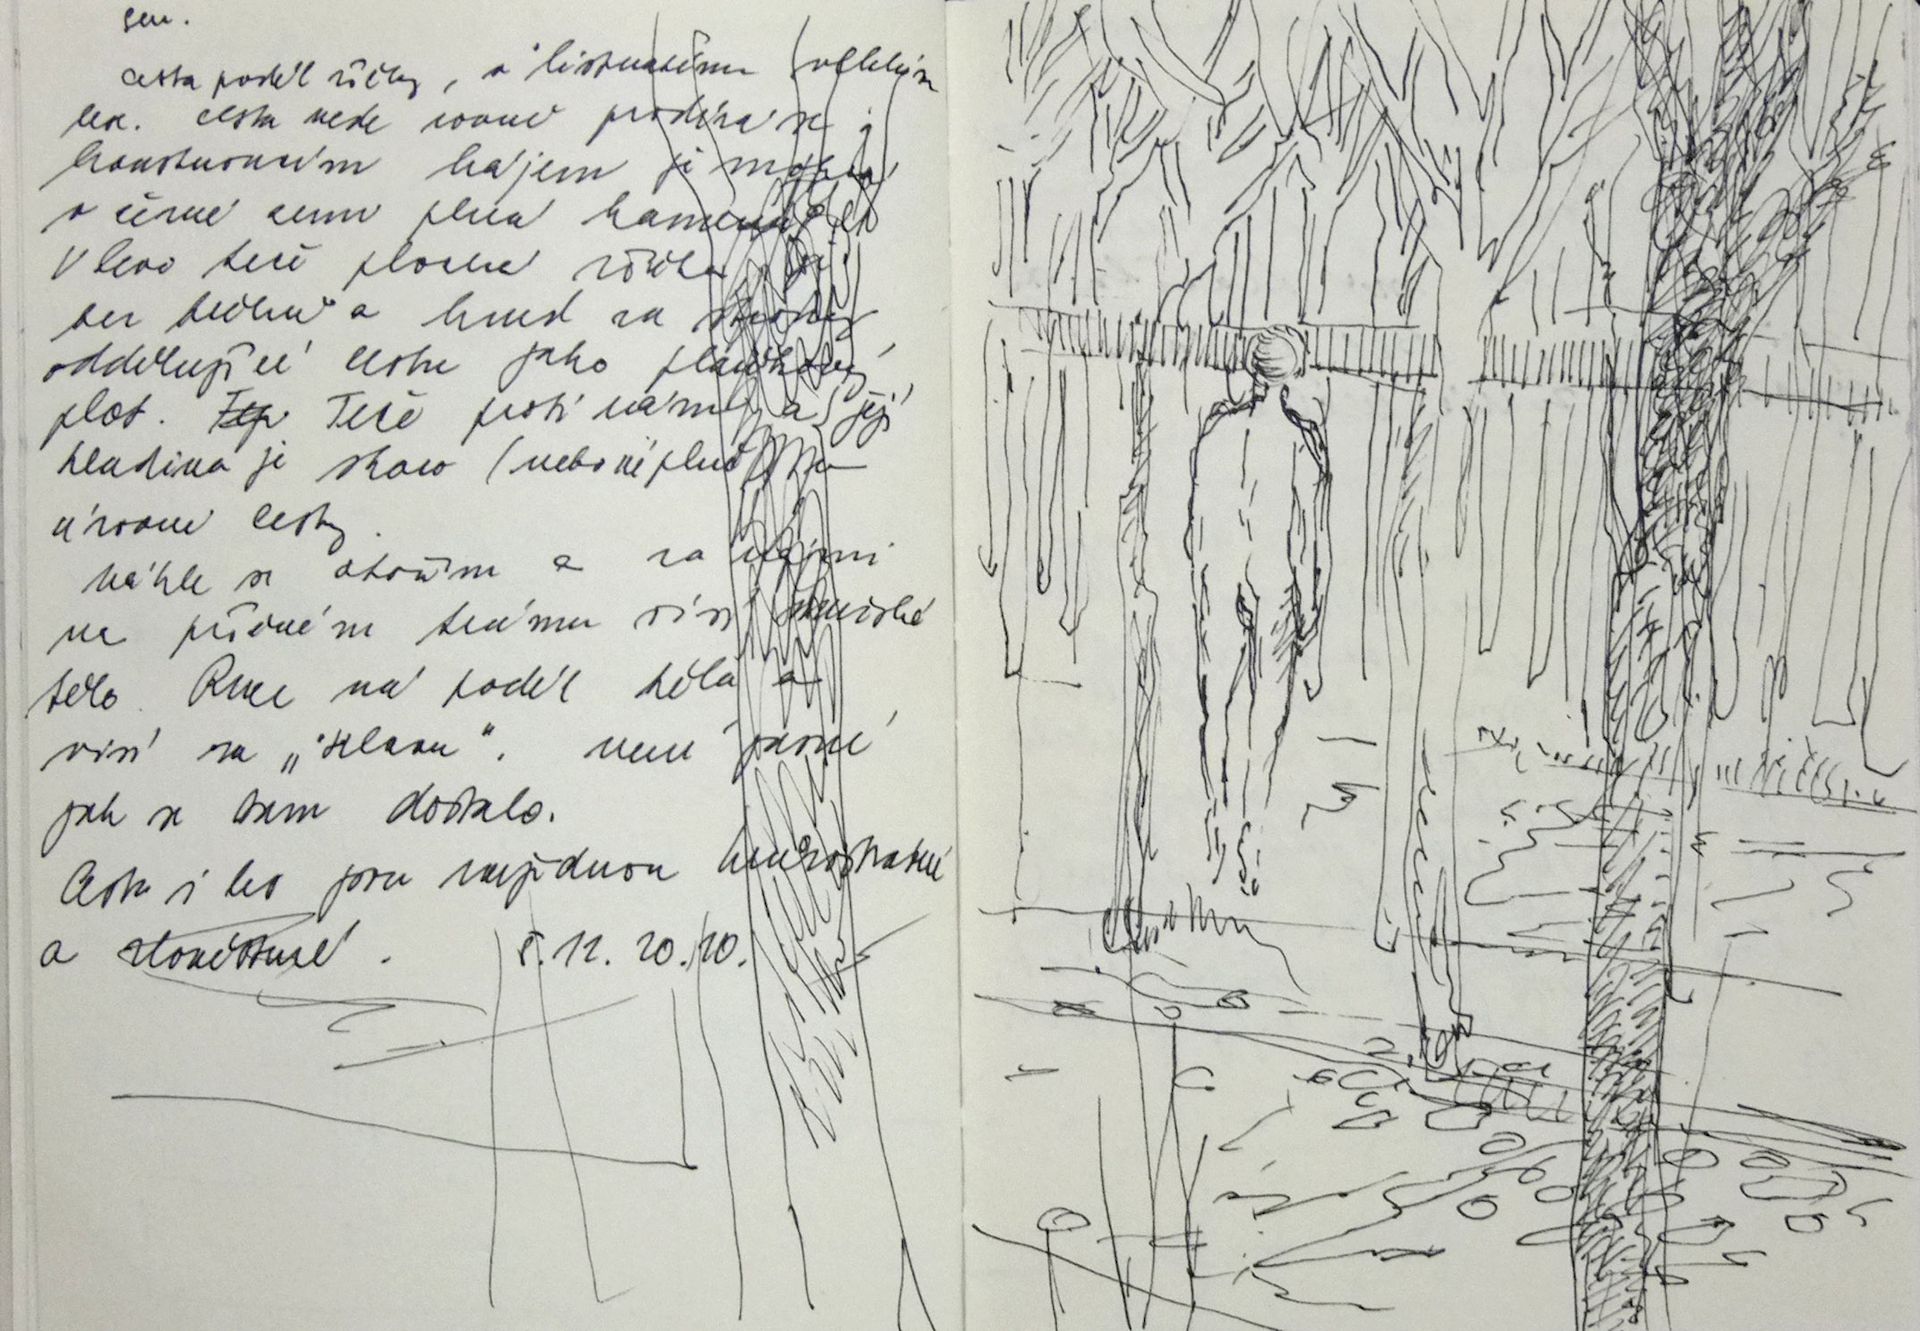 sen.
cesta podél říčky, v listnatém vlhkém
lese. cesta vede rovně prodírá se
hájem je mokrá
v černé zemi plná kamenů
Vlevo teče plochá říčka
bez břehů a hned za stromy
oddělující cestu jako plaňkový
plot. Teče proti nám a její
hladina je skoro (nebo úplně) na
úrovni cesty.
náhle se otočím a za námi
na příčném trámu visí
tělo. Ruce má podél těla a
visí za „hlavu“. není jasné
jak se tam dostalo.
Cesta i les jsou najednou
a zlověstné. 5.12.2020.